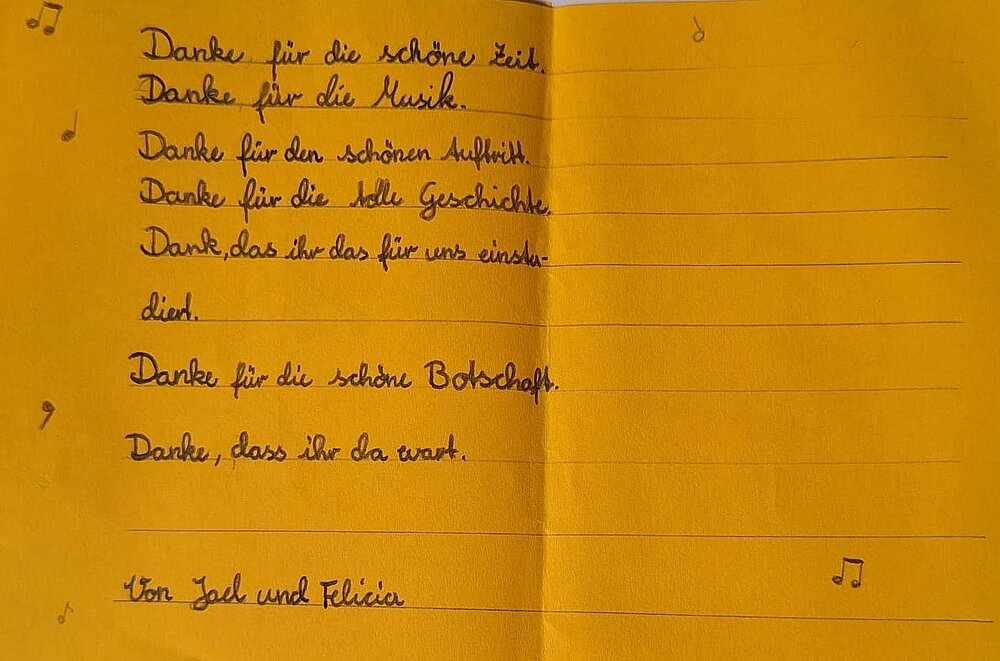 Danke für die schöne Zeit.
Danke für die Musik.
Danke für den schönen Auftritt.
Danke für die tolle Geschichte.
Dank, das ihr das für uns einstu-
diert.
Danke für die schöne Botschaft.
Danke, dass ihr da wart.
Von Joel und Felicia